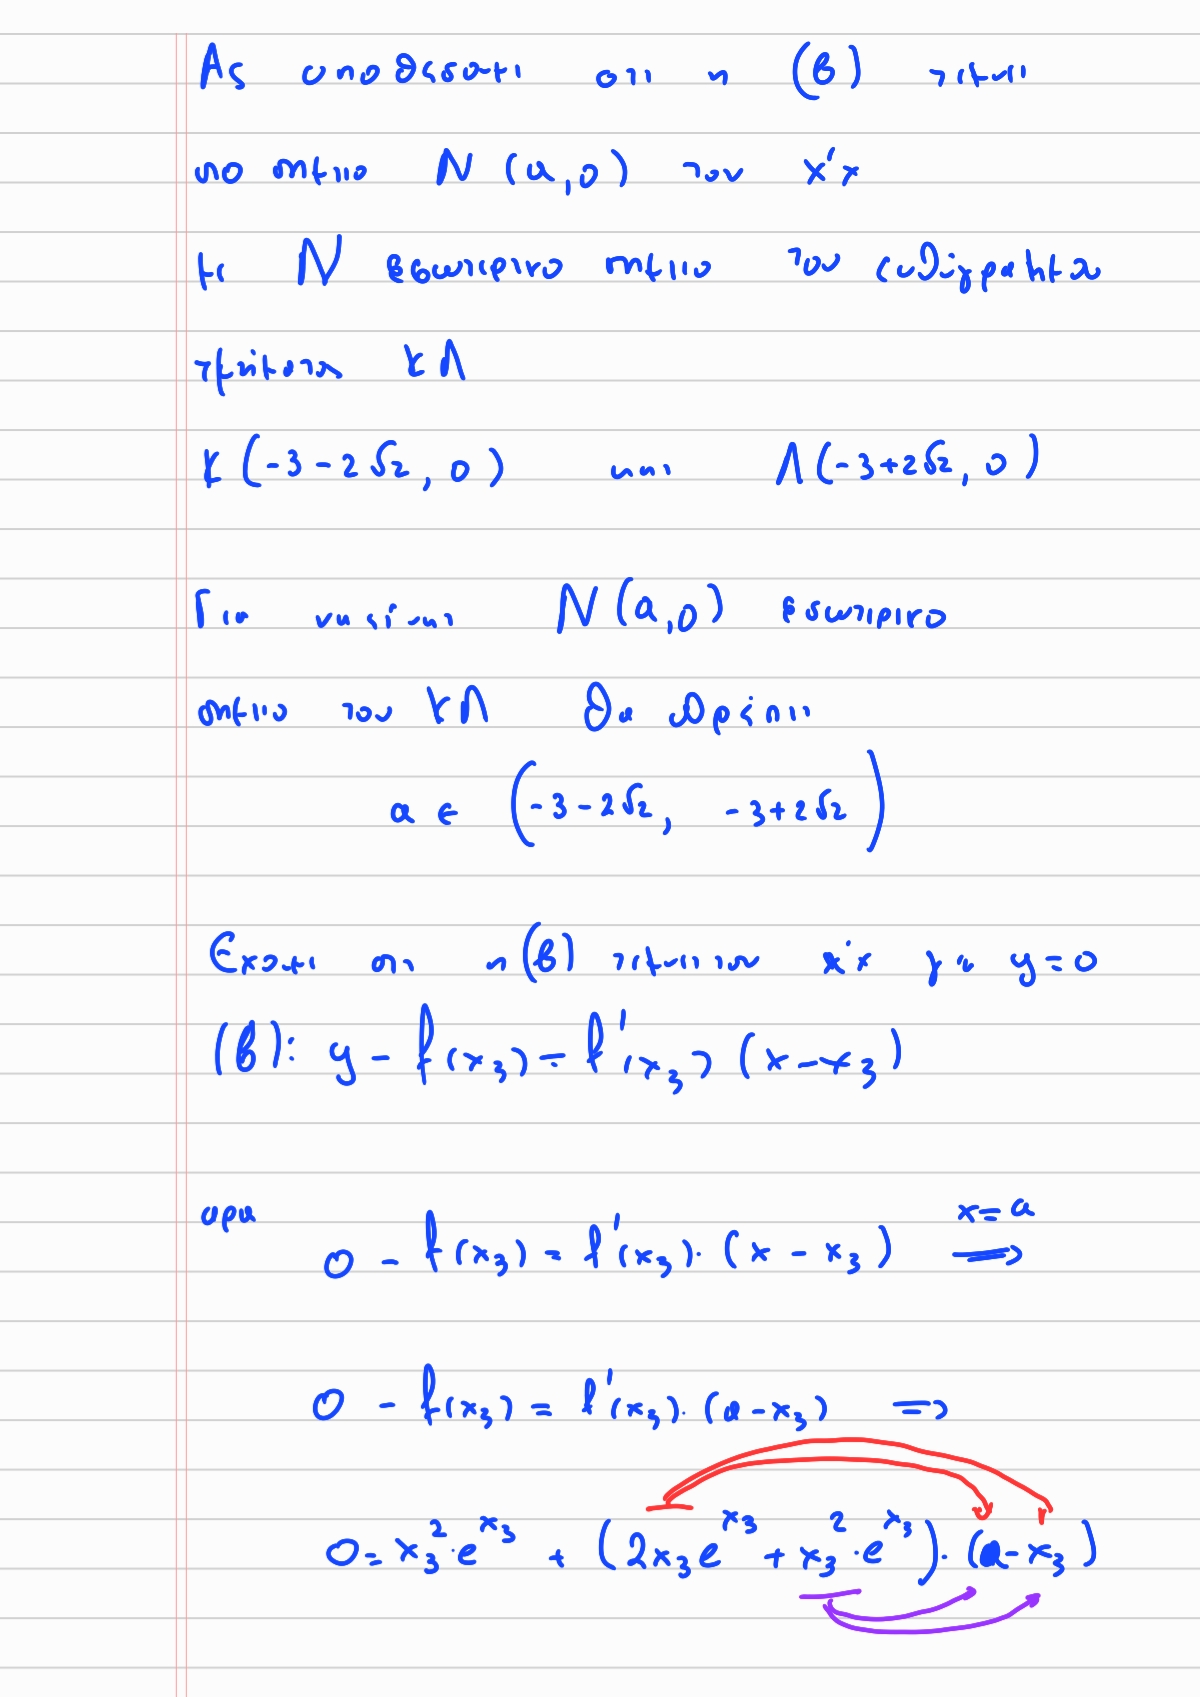 Ας υποθεσουμε οτι η (β) τεμνει
το σημειο N (α,0) του x'x
με N εσωτερικο σημειο του ευθύγραμμου
τμήματος ΚΛ
Κ(-3-2√2, 0) και Λ(-3+2√2, 0)
Για να είναι N(α,0) εσωτερικο
σημειο του ΚΛ θα πρέπει
α ∈ (-3-2√2, -3+2√2)
Εχουμε οτι η (β) τεμνει τον x'x για y=0
(β): y - f(x₃) = f'(x₃) (x-x₃)
αρα
0 - f(x₃) = f'(x₃)·(x - x₃) x=α ⟹
0 - f(x₃) = f'(x₃)·(α-x₃) ⟹
0 = x₃²·e^x₃ + (2x₃e^x₃ + x₃²·e^x₃)·(α-x₃)